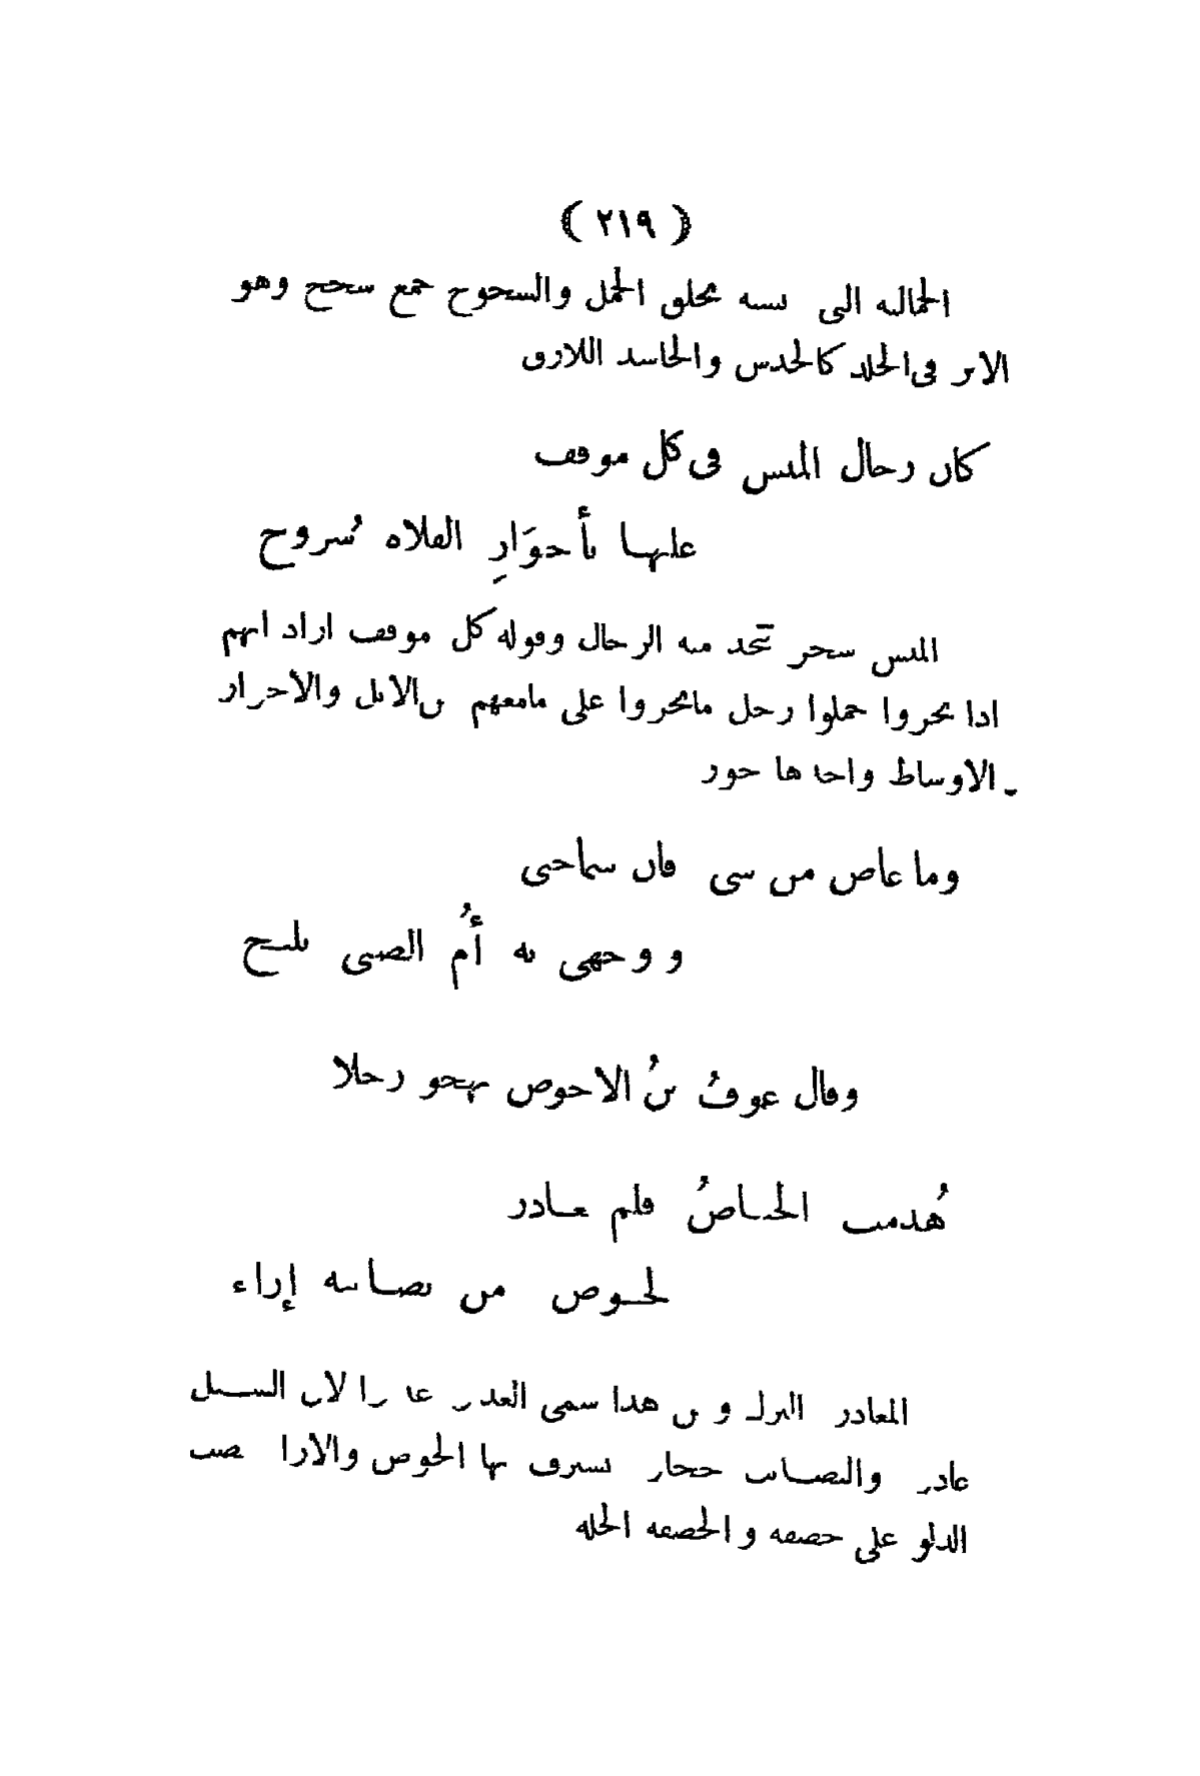 ﴿ ٢١٩ ﴾
الجمالية التي تشبه بخلق الجمل والسحوج جمع سحج وهو
الاثر في الجلد كالخدش والجاسد اللازق
كأن رحال الميس في كل موقف
عليها بأجوَازِ الفلاة سُروج
الميس شجر تتخذ منه الرحال وقوله كل موقف اراد انهم
اذا نحروا حملوا رحل مانحروا على مامعهم من الابل والاجواز
الاوساط واحدها جوز
وما غاض من شي فان سماحتي
ووجهي به أُم الصبي بليج
وقال عوفُ بنُ الاحوص يهجو رجلا
هُدمت الحياضُ فلم يغادر
لحوض من نصائبه إزاء
المغادر الترك ومن هذا سمي الغدير غديرا لان السيل
غادره والنصائب حجارة يشرف بها الحوض والازاء مصب
الدلو على خصفة والخصفة الجلة